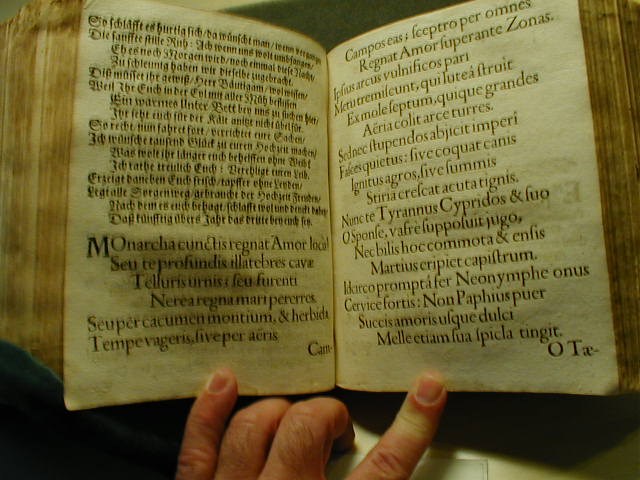 So schläfft es hurtig sich / da wünscht man / wenn vergangen
Die sanffte süsse Ruh: Ich wenn uns wolt umbfangen /
Eh es noch Morgen wird / noch einmal diese Nacht /
Zu schleunig haben wir dieselbe zugebracht.
Diß müsset ihr gewiß / Herr Bäutigam / wol wissen /
Weil Ihr Euch in der Eyl mit aller Müh beflissen
Ein warmes Unter Bett bey uns zu suchen hier /
Ihr seht euch für der Kält anitzt nicht übel für.
So recht, nun fahret fort / verrichtet eure Sachen /
Ich wünsche tausend Glück zu euren Hochzeit machen /
Was wolt ihr länger euch behelffen ohn Weib?
Ich rathe treulich Euch: Verehligt euren Leib.
Erzeigt daneben Euch frisch / tapffer ohne Lenden /
Legt alle Sorgen weg / gebraucht der Hochzeit Freuden /
Nach dem es euch behagt schlafft wol und denckt dabey /
Daß künfftig übers Jahr das dritte bey euch sey.
MOnarcha cunctis regnat Amor locis
Seu te profundis illatebres cavæ
Telluris urnis: seu furenti
Nerea regna mari pererres.
Seu per cacumen montium, & herbida
Tempe vageris, sive per aëris
Cam-
Campos eas; sceptro per omnes
Regnat Amor superante Zonas.
Ipsius arcus vulnificos pari
Metu tremiscunt, qui luteâ struit
Ex mole septum, quique grandes
Aëria colit arce turres.
Sed nec stupendos abjicit imperî
Fasces quietus: sive coquat canis
Ignitus agros, sive summis
Stiria crescat acuta tignis.
Nunc te Tyrannus Cypridos & suo
O Sponse, vafrè supposuit jugo,
Nec bilis hoc commota & ensis
Martius eripiet capistrum.
Idcirco promptâ fer Neonymphe onus
Cervice fortis: Non Paphius puer
Succis amoris usque dulci
Melle etiam sua spicla tingit.
O Tæ-